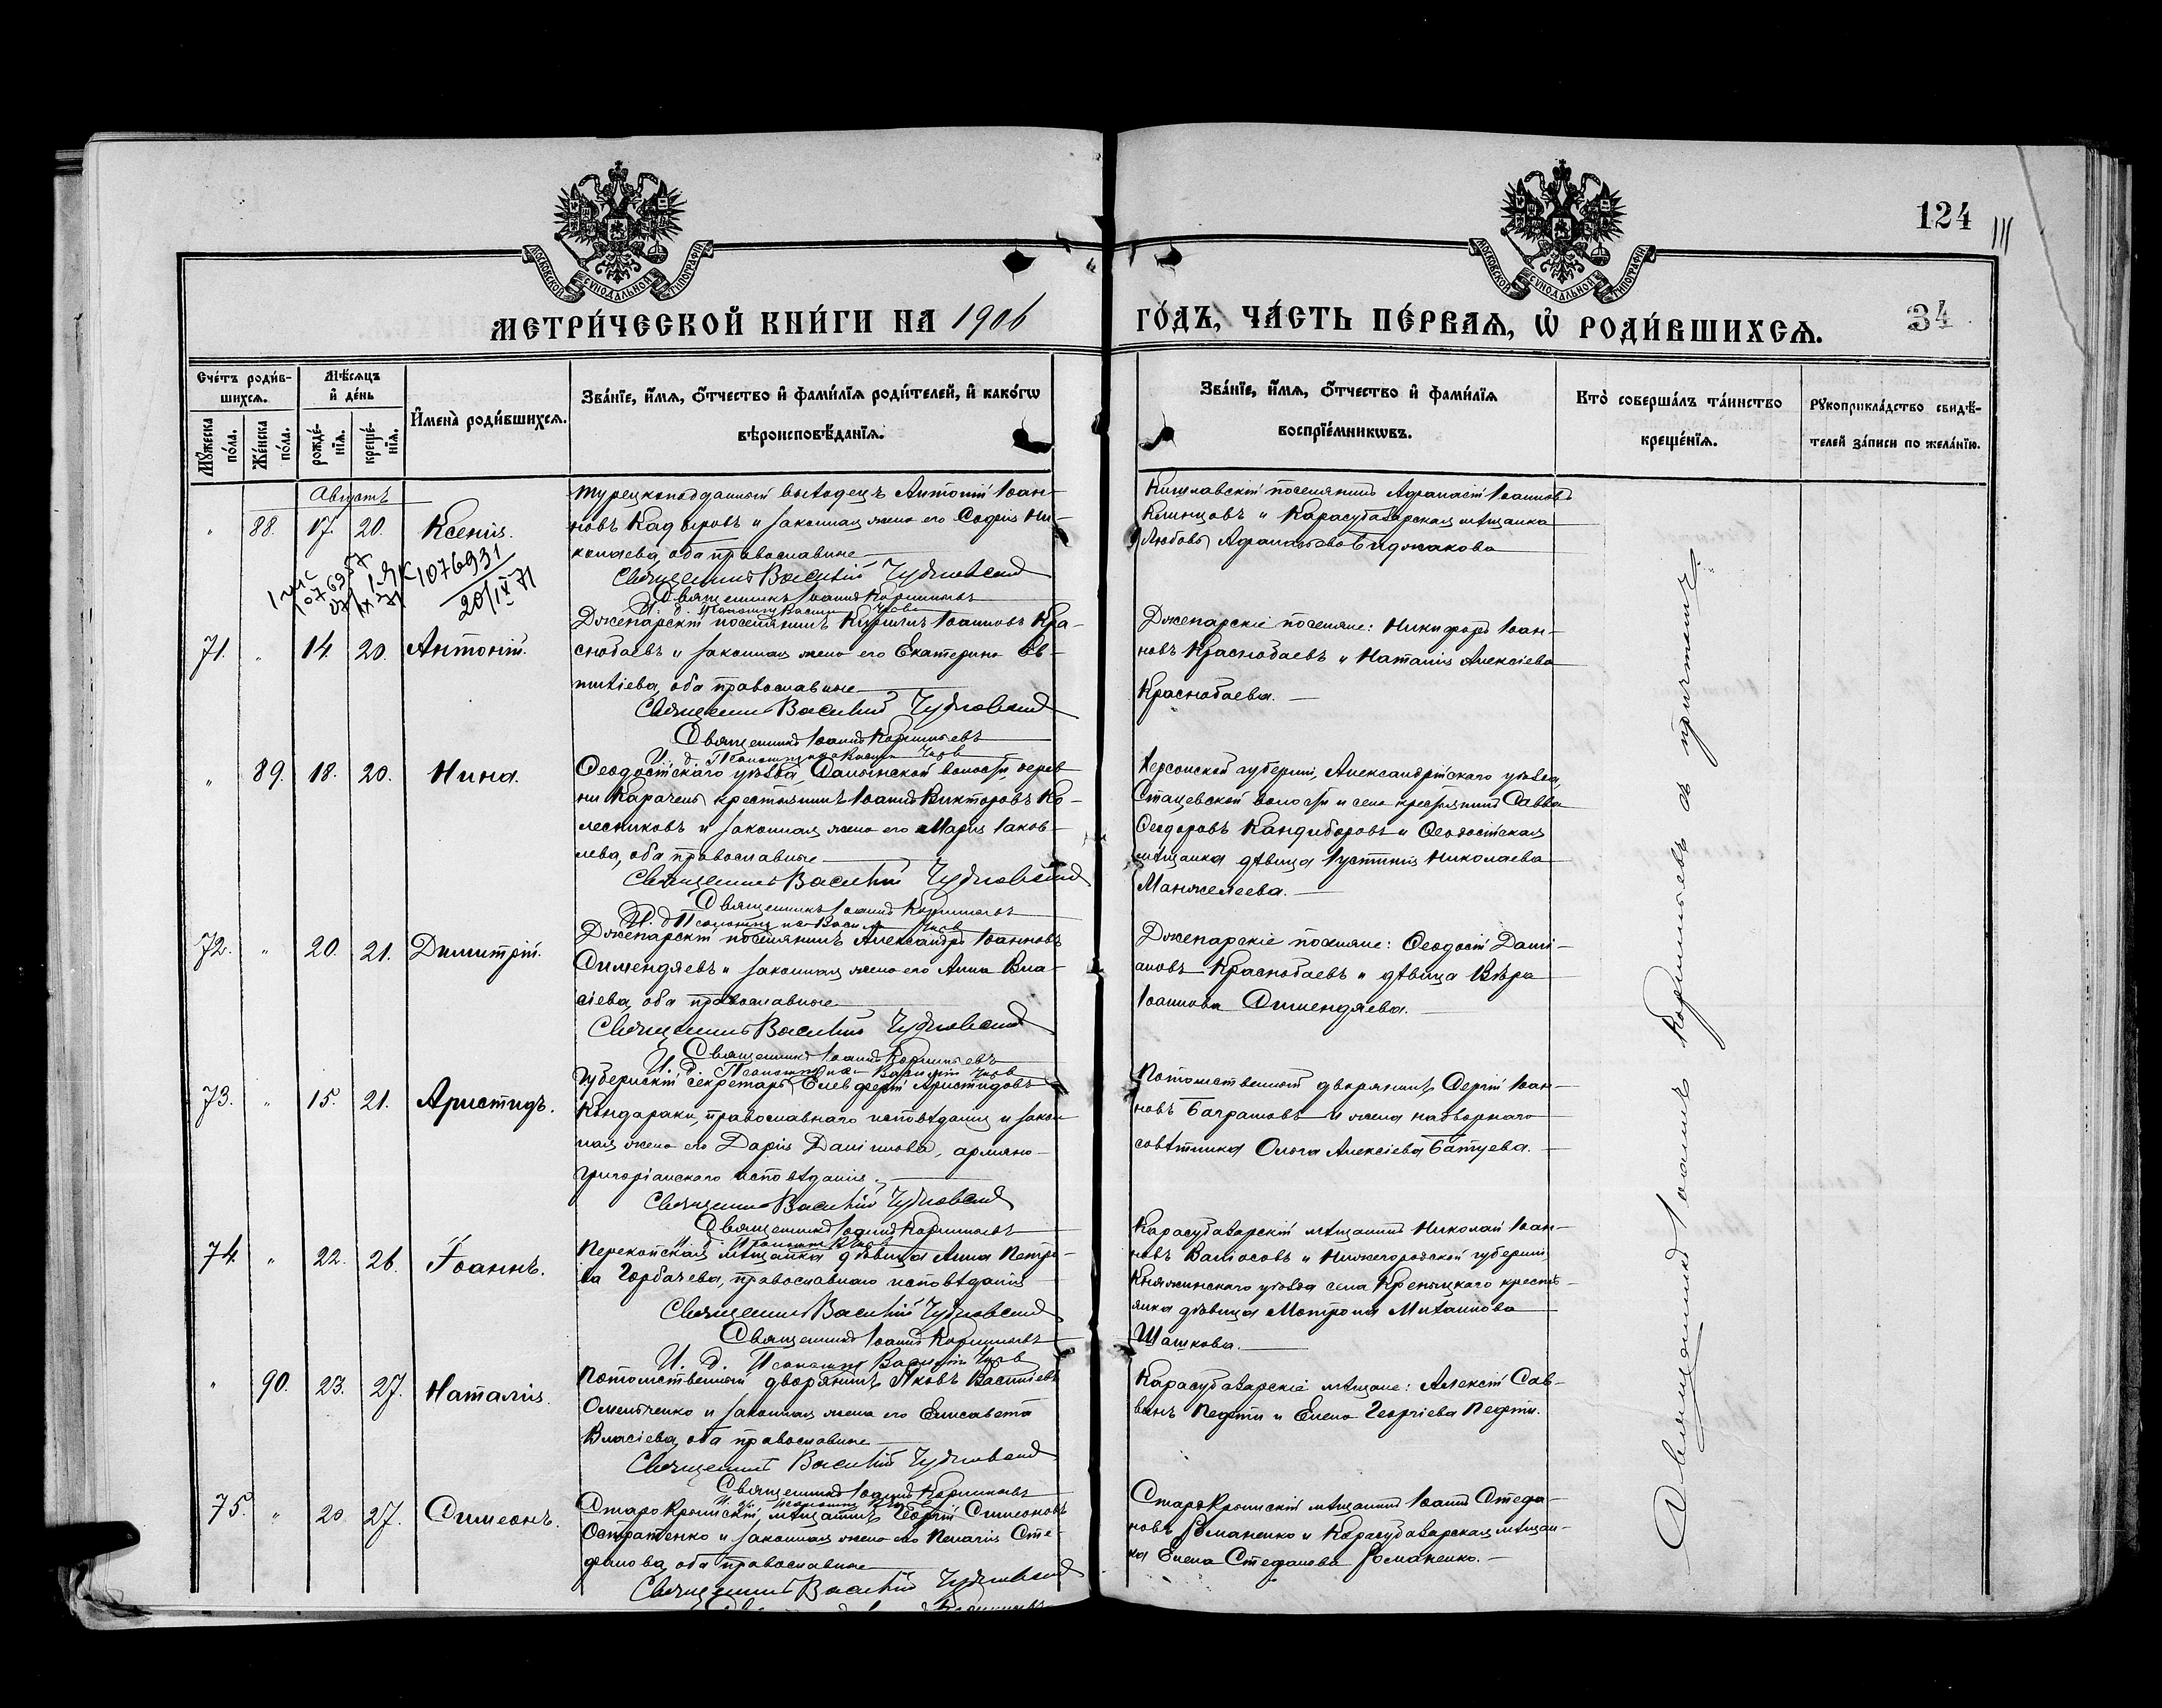 МОСКОВСКОЙ СѴНОДАЛЬНОЙ ТИПОГРАФІИ
МОСКОВСКОЙ СѴНОДАЛЬНОЙ ТИПОГРАФІИ
124
МЕТРИ́ЧЕСКОЙ КНИ́ГИ НА 1906
ГО́ДЪ, ЧА́СТЬ ПЕ́РВАѦ, Ѡ҆ РОДИ́ВШИХСѦ.
34
Сче́тъ роди́в-
шихсѧ.
Мꙋ́жеска по́ла.
Же́нска по́ла.
Мѣ́сѧцъ и҆ де́нь
рожде́-нїѧ.
креще́-нїѧ.
И҆мена̀ роди́вшихсѧ.
Зва́нїе, и҆́мѧ, ѻ҆́тчество и҆ фами́лїѧ роди́телей, и҆ како́гѡ
вѣроисповѣ́данїѧ.
Зва́нїе, и҆́мѧ, ѻ҆́тчество и҆ фами́лїѧ
воспрїе́мникѡвъ.
Кто̀ соверша́лъ та́инство
креще́нїѧ.
Рꙋкоприкла́дство свидѣ́-
телей за́писи по жела́нїю.
Августъ
" 88. 17. 20. Ксенія.
Турецкоподданный выходецъ Антоній Іоан-
новъ Кадыровъ и законная жена его Софія Ни-
колаева, оба православные
Священникъ Василій Чудновскій
Священникъ Іоаннъ
И. д. Псаломщ.
Афанасій Іоанновъ
Клинцовъ и Карасубазарская мѣщанка
Любовь
1076957
1076931
20/IV 71
71. " 14. 20. Антоній.
Дженарскій поселянинъ Кириллъ Іоанновъ Кра-
снобаевъ и законная жена его Екатерина Ев-
тихіева, оба православные
Священникъ Василій Чудновскій
Священникъ Іоаннъ
И. д. Псаломщика
Дженарскіе поселяне: Никифоръ Іоан-
новъ Краснобаевъ и Наталія Алексіева
Краснобаева.
" 89. 18. 20. Нина.
Ѳеодосійскаго уѣзда, волости, дерев-
ни Карачень крестьянинъ Іоаннъ Викторовъ Ко-
лесниковъ и законная жена его Марія Іаков-
лева, оба православные
Священникъ Василій Чудновскій
Священникъ Іоаннъ
И. д. Псаломщика
Херсонской губерніи, Александрійскаго уѣзда,
волости и села крестьянинъ Савва
Ѳеодоровъ Кандыборовъ и Ѳеодосійская
мѣщанка дѣвица Іустинія Николаева
Манжелеева.
72. " 20. 21. Димитрій.
Дженарскій поселянинъ Александръ Іоанновъ
Симендяевъ и законная жена его Анна Вла-
сіева, оба православные
Священникъ Василій Чудновскій
Священникъ Іоаннъ
И. д. Псаломщика Василій
Дженарскіе поселяне: Ѳеодосій Дани-
ловъ Краснобаевъ и дѣвица Вѣра
Іоаннова Симендяева.
73. " 15. 21. Аристидъ.
Губернскій секретарь Елевферій Аристидовъ
Кондараки, православнаго исповѣданія и закон
ная жена его Дарія Даніилова, армяно-
григоріанскаго исповѣданія.
Священникъ Василій Чудновскій
Священникъ Іоаннъ
И. д. Псаломщ.
Потомственный дворянинъ Сергій Іоан-
новъ Баграмовъ и жена надворнаго
совѣтника Ольга Алексіева Батуева.
74. " 22. 26. Іоаннъ.
Перекопская мѣщанка дѣвица Анна Петро-
ва Горбачева, православнаго исповѣданія
Священникъ Василій Чудновскій
Священникъ Іоаннъ
И. д. Псаломщ. Василій
Карасубазарскій мѣщанинъ Николай Іоан-
новъ Валіосовъ и Нижегородской губерніи,
Княгининскаго уѣзда села крестья-
янка дѣвица Матрона Михаилова
Шашкова.
" 90. 23. 27. Наталія.
Потомственный дворянинъ Яковъ Василіевъ
Омельченко и законная жена его Елисавета
Власіева, оба православные
Священникъ Василій Чудновскій
Священникъ Іоаннъ
И. д. Псаломщ.
Карасубазарскіе мѣщане: Алексій Сав-
винъ Пефти и Елена Георгіева Пефти.
75. " 20. 27. Симеонъ.
Старокрымскій мѣщанинъ Георгій Симеоновъ
Остратенко и законная жена его Пелагія Сте-
фанова, оба православные
Священникъ Василій Чудновскій
Старокрымскій мѣщанинъ Іоаннъ Стефа-
новъ Романенко и Карасубазарская мѣщан-
ка Елена Стефанова Романенко.
Священникъ Іоаннъ съ причтомъ.